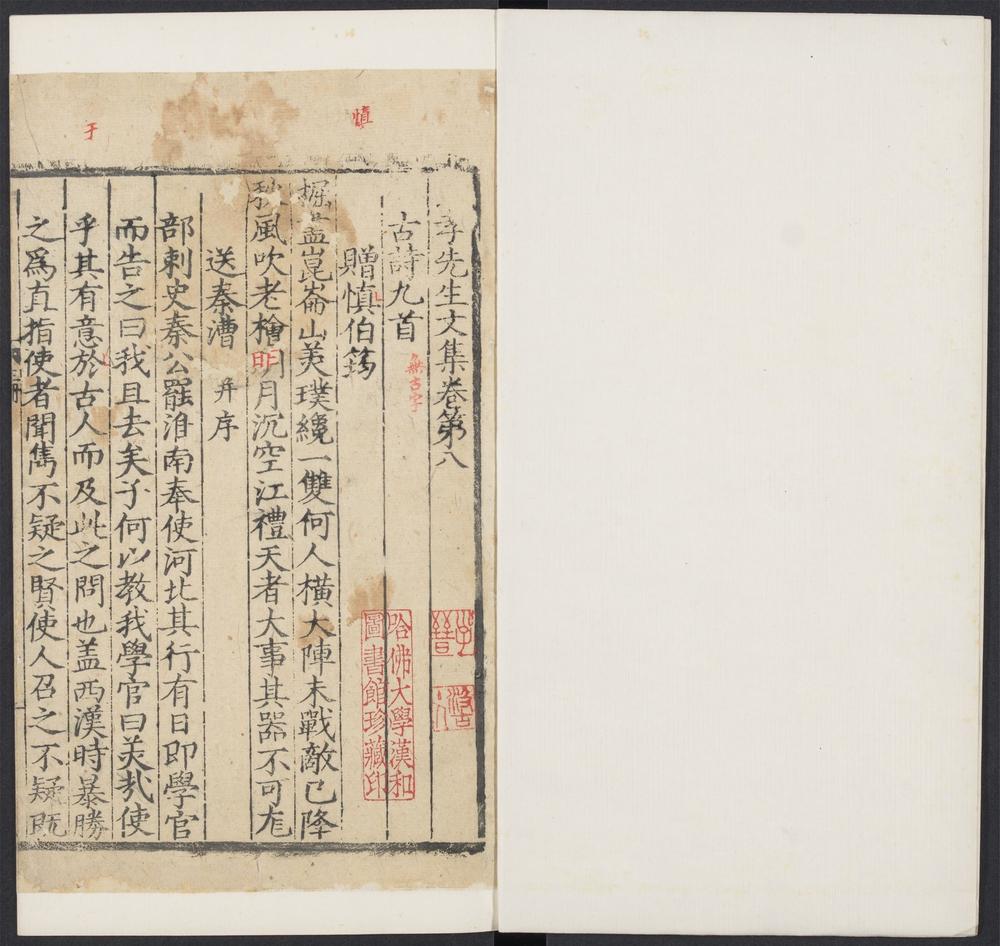 李先生文集卷第八
古詩九首
無古字
贈慎伯筠
慎
掘盡崑崙山美璞纔一雙何人橫大陣未戰敵已降
秋風吹老檜明月沉空江禮天者大事其器不可尨
明
送秦漕 并序
部剌史秦公罷淮南奉使河北其行有日即學官
而告之曰我且去矣子何以教我學官曰美哉使
于
乎其有意於古人而及此之問也盖西漢時暴勝
之爲直指使者聞雋不疑之賢使人召之不疑既
哈佛大學漢和
圖書館珍藏印